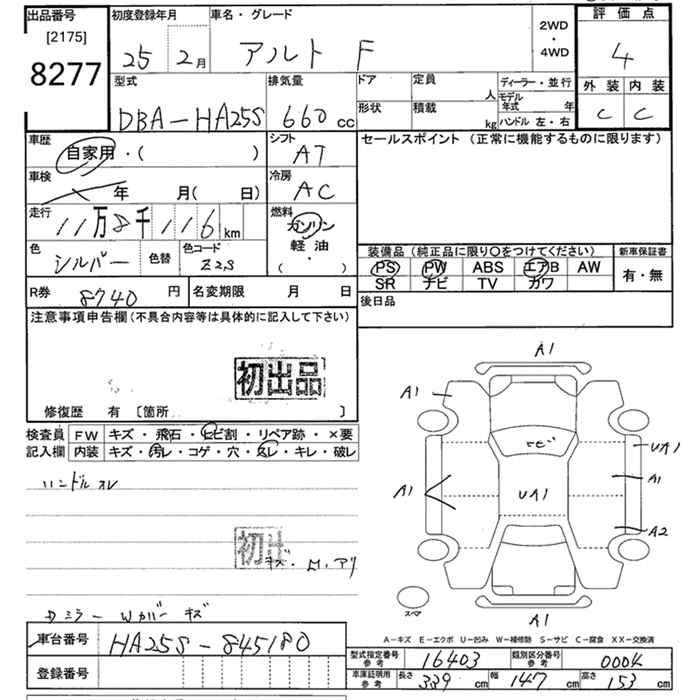 出品番号 初度登録年月 車名・グレード 2WD・4WD 評価点
[2175]
8277 25 2月 アルト F 4
型式 排気量 ドア 定員 人 ディーラー・並行 外装 内装
DBA-HA25S 660cc 形状 積載 kg モデル年式 年 C C
ハンドル 左・右
車歴 自家用・( ) シフト AT セールスポイント (正常に機能するものに限ります)
車検 年 月( 日) 冷房 AC
走行 11万8千116km 燃料 ガソリン
軽油
・
( )
色 シルバー 色替 色コード Z2S 装備品 (純正品に限り○をつけてください) 新車保証書
PS PW ABS エアB AW 有・無
SR ナビ TV カワ
R券 8740円 名変期限 月 日 後日品
注意事項申告欄(不具合内容等は具体的に記入して下さい)
初出品
修復歴 有 〔箇所 〕
検査員 FW キズ・飛石・ヒビ割・リペア跡・×要
記入欄 内装 キズ・汚レ・コゲ・穴・スレ・キレ・破レ
ハンドルスレ
A1
A1
UA1
A1
A1
UA1
A2
A1
初出
Dミラー Wカバー キズ
スペア
A-キズ E-エクボ U-凹み W-補修跡 S-サビ C-腐食 XX-交換済
車台番号 HA25S-845180
登録番号
型式指定番号 参考 16403 類別区分番号 参考 0004
車庫証明用 参考 長さ 339cm 幅 147cm 高さ 153cm